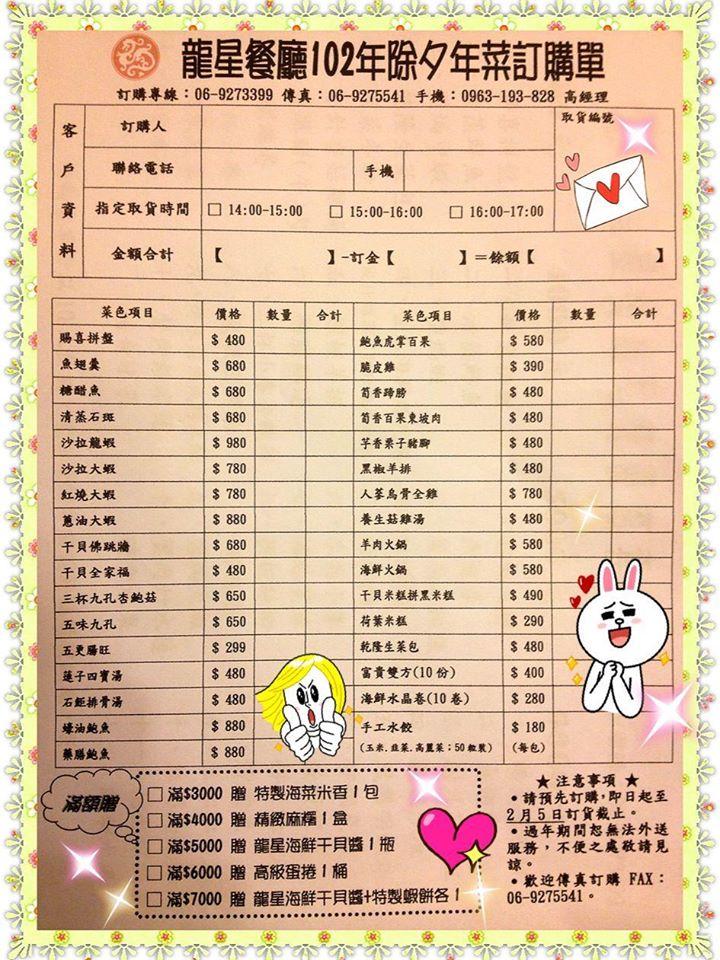 龍星餐廳102年除夕年菜訂購單
訂購專線：06-9273399 傳真：06-9275541 手機：0963-193-828 高經理
客戶資料
訂購人
取貨編號
聯絡電話 手機
指定取貨時間 □ 14:00-15:00 □ 15:00-16:00 □ 16:00-17:00
金額合計 【 】-訂金【 】＝餘額【 】
菜色項目 價格 數量 合計 菜色項目 價格 數量 合計
賜喜拼盤 $ 480 鮑魚虎掌百果 $ 580
魚翅羹 $ 680 脆皮雞 $ 390
糖醋魚 $ 680 筍香蹄膀 $ 480
清蒸石斑 $ 680 筍香百果東坡肉 $ 480
沙拉龍蝦 $ 980 芋香栗子豬腳 $ 480
沙拉大蝦 $ 780 黑椒羊排 $ 480
紅燒大蝦 $ 780 人蔘烏骨全雞 $ 780
蔥油大蝦 $ 880 養生菇雞湯 $ 480
干貝佛跳牆 $ 680 羊肉火鍋 $ 580
干貝全家福 $ 480 海鮮火鍋 $ 580
三杯九孔杏鮑菇 $ 650 干貝米糕拼黑米糕 $ 490
五味九孔 $ 650 荷葉米糕 $ 290
五更腸旺 $ 299 乾隆生菜包 $ 480
蓮子四寶湯 $ 480 富貴雙方(10 份) $ 400
石鉅排骨湯 $ 480 海鮮水晶卷(10 卷) $ 280
蠔油鮑魚 $ 880 手工水餃 $ 180
藥膳鮑魚 $ 880 (玉米.韭菜.高麗菜；50 粒裝) (每包)
滿額贈
□ 滿$3000 贈 特製海菜米香1包
□ 滿$4000 贈 精緻麻糬1盒
□ 滿$5000 贈 龍星海鮮干貝醬1瓶
□ 滿$6000 贈 高級蛋捲1桶
□ 滿$7000 贈 龍星海鮮干貝醬+特製蝦餅各1
★ 注意事項 ★
• 請預先訂購，即日起至
2 月 5 日訂貨截止。
• 過年期間恕無法外送
服務，不便之處敬請見
諒。
• 歡迎傳真訂購 FAX：
06-9275541。